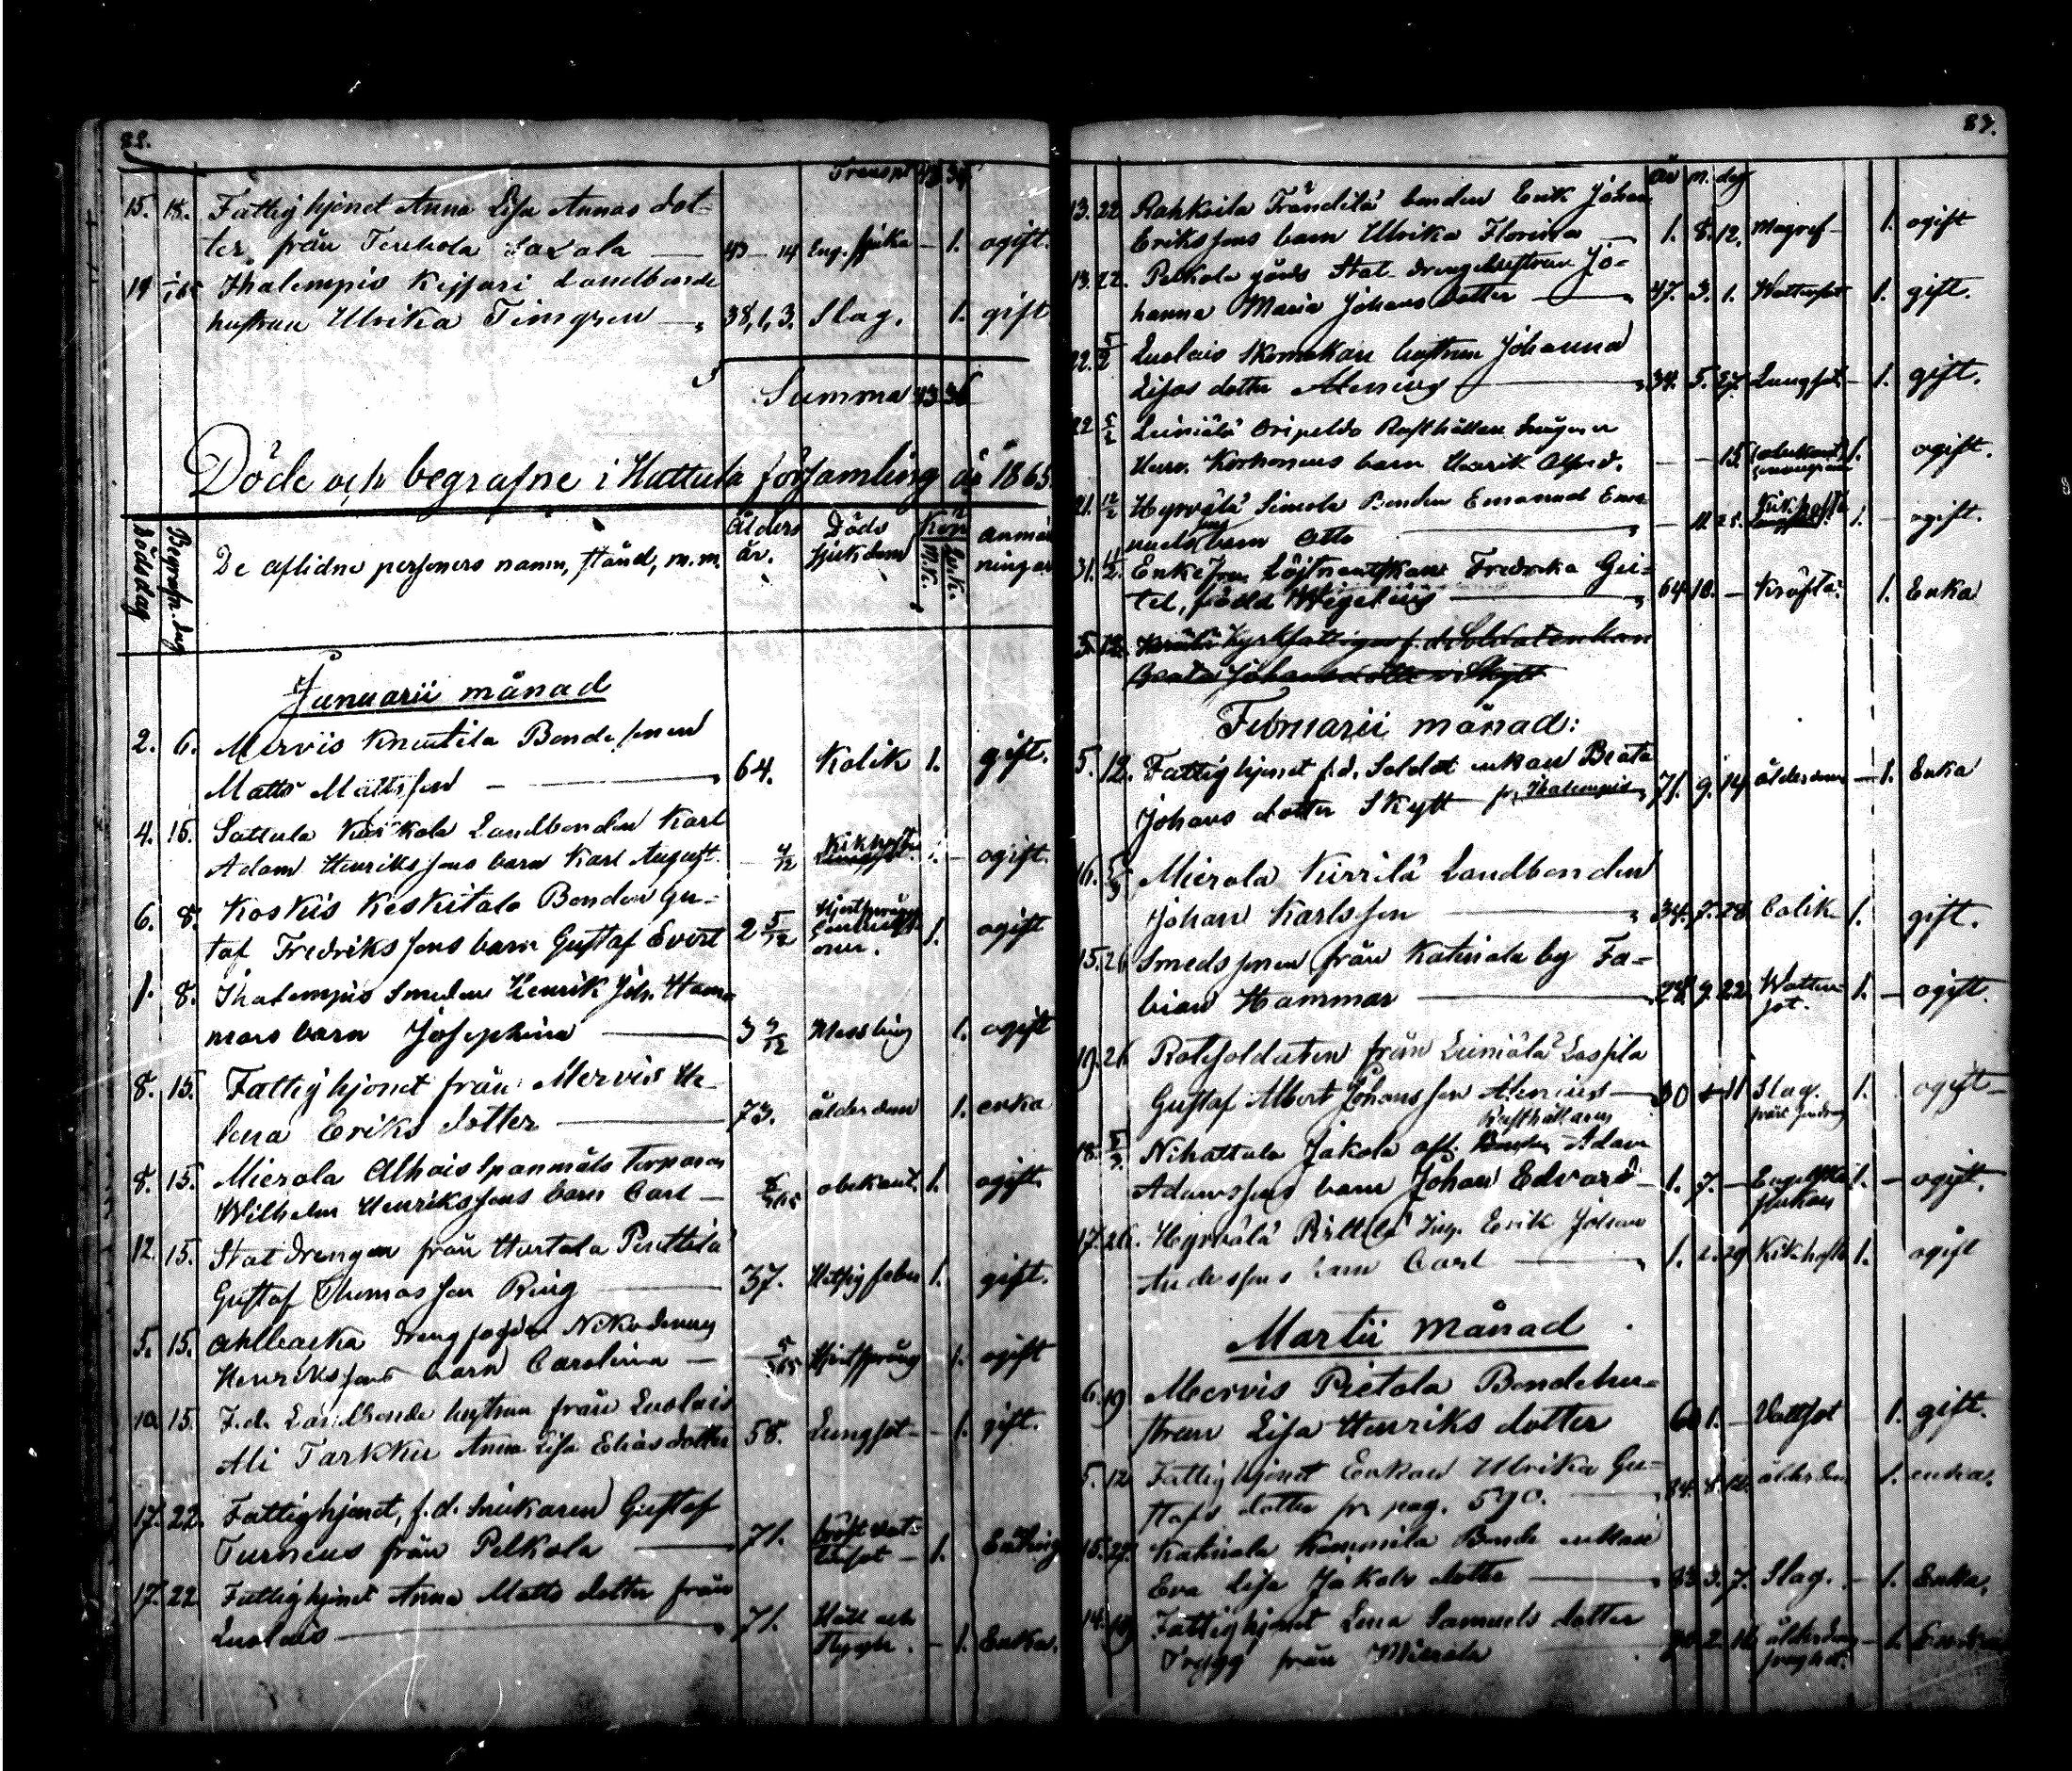 88.
Transpt 43 34
15. 18. Fattighjonet Anna Lisa Annas dot-
ter, från Tenhola Saxala — 43 — 14 Eng. sjuka — 1. ogift.
19 1/1 65 Ihalempis Keijsari Landbonde
hustrun Ulrika Timgren — 38, 1, 3. Slag. 1. gift
Summa 43 36
Döde och begrafne i Hattula församling år 1865
Dödsdag Begrafn. dag De aflidne personers namn, stånd, m.m. Ålders år. Döds sjukdom Kön M.K. Qv.K. Anmärkningar
Januarii månad
2. 6. Mervis Knuutila Bonde sonen
Matts Mattsson — 64. Kolik 1. gift.
4. 15. Sattula Kuikola Landbonden Karl
Adam Henrikssons barn Karl August. — 4/12 Kikhosta 1. — ogift.
6. 8. Koskis Keskitalo Bonden Gu-
taf Fredrikssons barn Gustaf Evert 2 5/12 Hjertsprång 1. ogift
1. 8. Ihalempis Smeden Henrik Joh. Ham-
mars barn Josephina — 3 3/12 Messling 1. ogift
8. 15. Fattighjonet från Mervis He-
lena Eriks dotter — 73. ålderdom 1. enka
8. 15. Mierola Alhais Spanmåls Torparen
Wilhelm Henrikssons barn Carl — 8/365 obekant. 1. ogift.
12. 15. Statdrengen från Hurtala Penttilä
Gustaf Thomasson Ring — 37. Hetsig feber 1. gift.
5. 15. Ahlbacka drengfogden Nikodemus
Henrikssons barn Carolina — 5/365 Hjertsprång 1. ogift
10. 15. F.d. Landbonde hustrun från Luolais
Ali Tarkku Anna Lisa Elias dotter 58. Lungsot — 1. gift.
17. 22. Fattighjonet, f.d. Snickaren Gustaf
Turneus från Pelkola — 71. bröst vat-
tusot — 1. Enkling
17. 22 Fattighjonet Anna Matts dotter från
Luolais — 71. Håll och
Stygn. — 1. Enka.
89.
år m. dag
13. 22 Rahkoila Frändilä bonden Erik Johan
Erikssons barn Ulrika Florina — 1. 8. 12. Magref — 1. ogift
13. 22. Pelkola gårds Stat drengshustrun Jo-
hanna Maria Johans dotter — 47. 3. 1. Wattusot 1. gift.
22. 5/2 Luolais Skomakare hustrun Johanna
Lisas dotter Alenius — 34. 5. 27. Lungsot — 1. gift.
22 5/2 Leiniälä Oripeldo Rusthållare
Henr. Korhonens barn Henrik Alfred. — — 15. 1. ogift.
21. 12/2 Hyrvälä Simola Bonden Emanuel Ema-
nuelssons barn Otto — 11. 28. Kikhosta 1. — ogift.
31. 11/2. Enkefru Löjtnantskan Fredrika Gei-
tel, född Wigelius — 64. 10. — Kräfta. 1. Enka
5. 12. Kyrkfattigen f.d. Soldatenkan
Beata Johans dotter Skytt
Februarii månad:
5. 12. Fattighjonet f.d. Soldat enkan Beata
Johans dotter Skytt fr. Ihalempis 71. 9. 14 ålderdom — 1. Enka
16. 5/3 Mierola Kirrilä Landbonden
Johan Karlsson — 34. 7. 28 Colik 1. gift.
15. 26 Smedsonen från Katinala by Fa-
bian Hammar — 28. 9. 22. Wattu-
sot. 1. — ogift.
19. 26 Rotesoldaten från Leiniälä Laspila
Gustaf Albert Johansson Alenius — 30 4 11 Slag. 1. ogift —
18. 5/3. Nihattula Jakola afl. Rusthållaren Adam
Adamssons barn Johan Edvard — 1. 7. — Engelska
sjukan 1. — ogift.
17. 26. Hyrvälä Inh. Erik Johan
Anderssons barn Carl — 1. 2. 29 Kikhosta 1. ogift
Martii månad
6. 19 Mervis Pietola Bondehu-
strun Lisa Henriks dotter 60 1. — Vattsot 1. gift.
5. 12 Fattighjonet Enkan Ulrika Gu-
stafs dotter fr pag. 590. — 84. 8. 12. ålderdom 1. enka.
15. 27. Katinala Bonde enkan
Eva Lisa Jakobs dotter — 83. 3. 7. Slag. — 1. Enka.
14. 19 Fattighjonet Lena Samuels dotter
Trygg från Mierola 2. 16 ålderdoms
svaghet. — 1. Enka